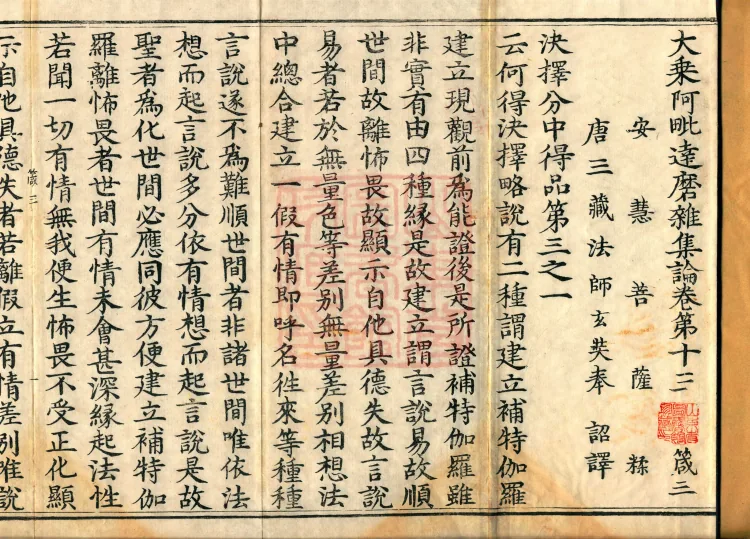 大乘阿毗達磨雜集論卷第十三 箴三
安慧菩薩糅
唐三藏法師玄奘奉 詔譯
決擇分中得品第三之一
云何得決擇略說有二種謂建立補特伽羅
建立現觀前為能證後是所證補特伽羅雖
非實有由四種緣是故建立謂言說易故順
世間故離怖畏故顯示自他具德失故言說
易者若於無量色等差別無量差別相想法
中總合建立一假有情即呼名往來等種種
言說遂不為難順世間者非諸世間唯依法
想而起言說多分依有情想而起言說是故
聖者為化世間必應同彼方便建立補特伽
羅離怖畏者世間有情未會甚深緣起法性
若聞一切有情無我便生怖畏不受正化顯
箴三
示自他具德失者若離假立有情差別唯說